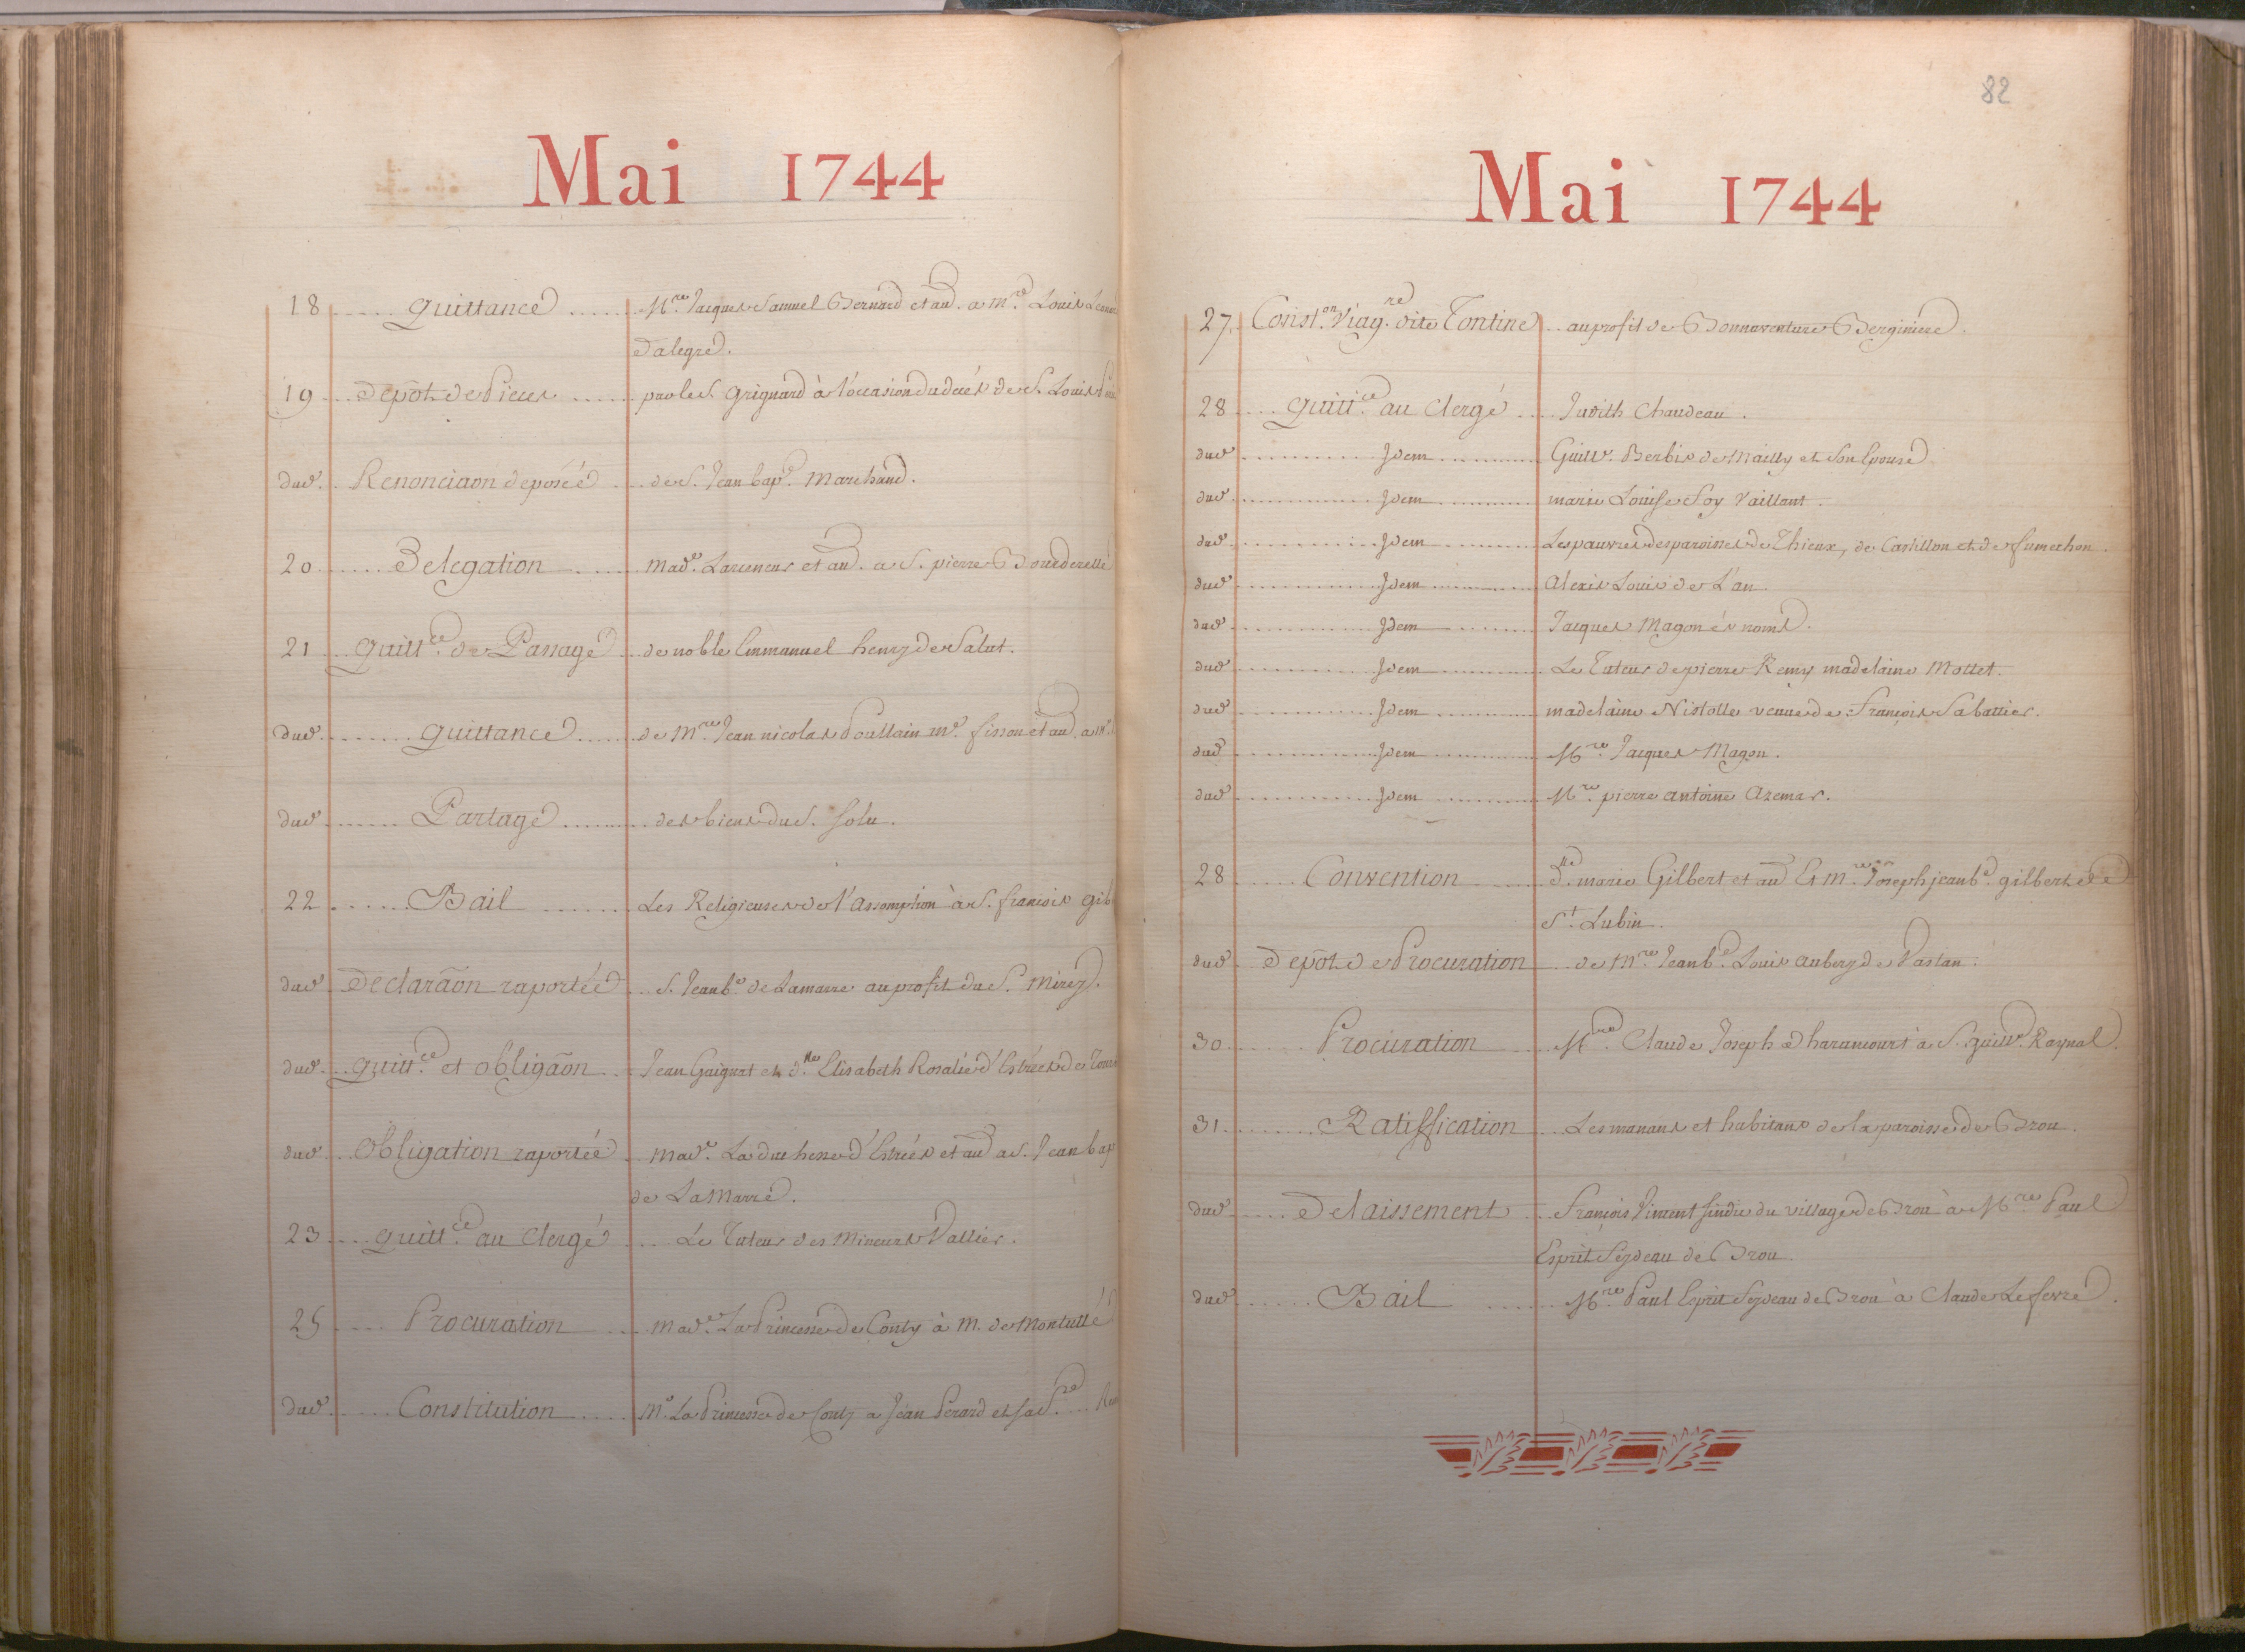 Mai 1744
18 quittance Mre. Jacques Samuel Bernard et au. a mre. Louis
d'alegre.
19 depôt de Pieces par le S. Grignard à l'occasion du decès de S. Louis
dud. Renonciaõn deposéé de S. Jean bape. Marchand.
20 Delegation made. Larceneur et au. a S. pierre Bourderelle
21 quittce. de Passage de noble Emmanuel henry de Salut.
dud. quittance de Mre. Jean nicolas Poullain me. fisson et au. a
dud. Partage des biens du S. solu.
22 Bail Les Religieuses de l'assomption à S. françois
dud. declaraõn raportéé S. Jean be. de Lamarre au profit du S. Mirey.
dud. quittce. et obligaõn Jean Gaignat et dlle. Elisabeth Rosalie d'Estrées de
dud. obligation raportéé made. La duchesse d'Estrées et au a S. Jean bap
de La Marre.
23 quittce. au Clergé Le Tuteur des Mineurs Vallier.
25 Procuration made. La Princesse de Conty à M. de Montullé
dud. Constitution Me. La Princesse de Conty a Jean Perard et sa
82
Mai 1744
27. Const.on Viag.re dite Tontine au profit de Bonnaventure Berginiere.
28 quittce. au Clergé Judith Chaudeau.
dud. Idem Guille. Berbis de Mailly et son Epouse
dud. Idem marie Louise Soy Vaillant.
dud. Idem Les pauvres des paroisses de Thieux, de Castillon et de fumechon.
dud. Idem Alexis Louis de L'an.
dud. Idem Jacques Magon ès noms.
dud. Idem Le Tuteur de pierre Remy madelaine Mottet.
dud. Idem madelaine Nistolle veuve de françois Sabattier.
dud. Idem Mre. Jacques Magon.
dud. Idem Mre. pierre antoine Azemar.
28 Convention dlle. marie Gilbert et au Et mre. Joseph jean be. gilbert de
St. Lubin.
dud. depôt de Procuration de Mre. Jean be. Louis aubery de Vastan.
30 Procuration Mre. Claude Joseph d'harancourt à S. guille. Raynal.
31 Ratiffication Les manans et habitans de la paroisse de Brou.
dud. delaissement françois Vincent sindic du village de Brou à Mre. Paul
Esprit feydeau de Brou.
dud. Bail Mre. Paul Esprit feydeau de Brou à Claude Lefevre.